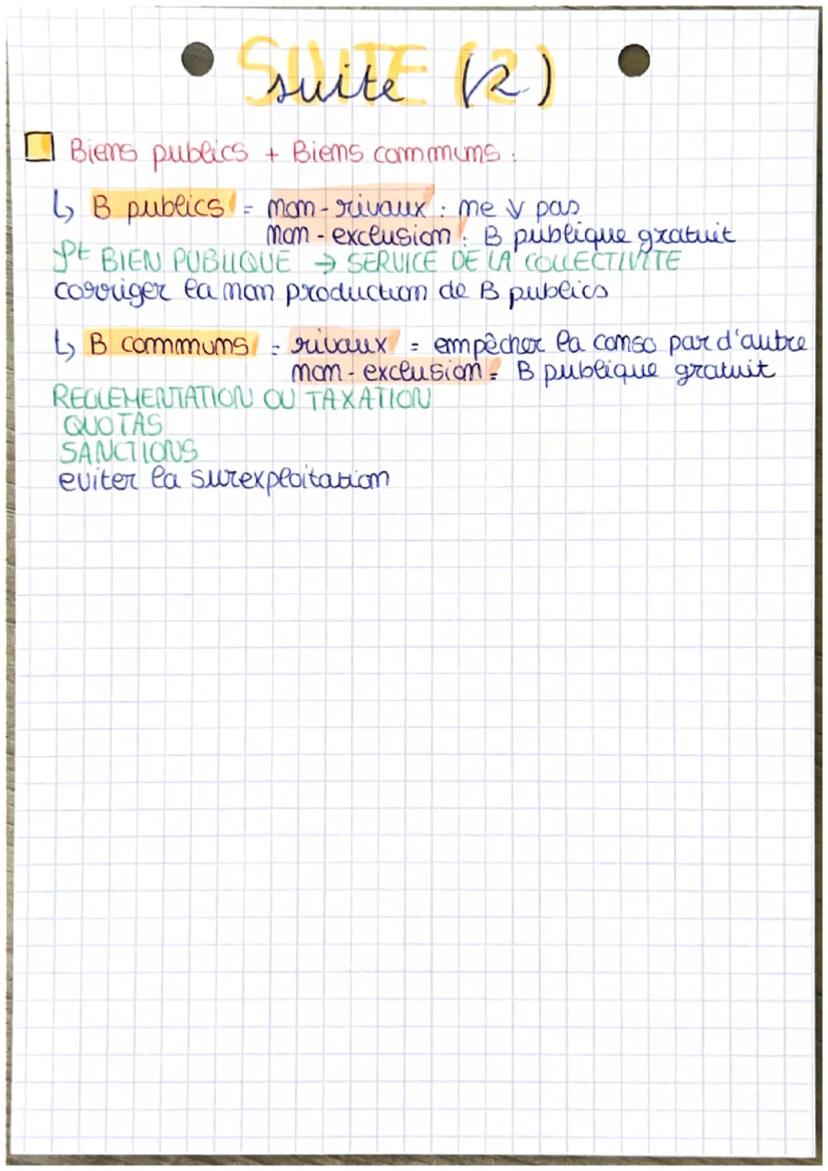 suite (2)
Biens publics + Biens communs :
↳ B publics = non-rivaux : ne ↓ pas
non-exclusion : B publique gratuit
BIEN PUBLIQUE → SERVICE DE LA COLLECTIVITE
corriger la non production de B publics
↳ B communs = rivaux = empêcher la conso par d'autre
non-exclusion = B publique gratuit
REGLEMENTATION OU TAXATION
QUOTAS
SANCTIONS
eviter la surexploitation